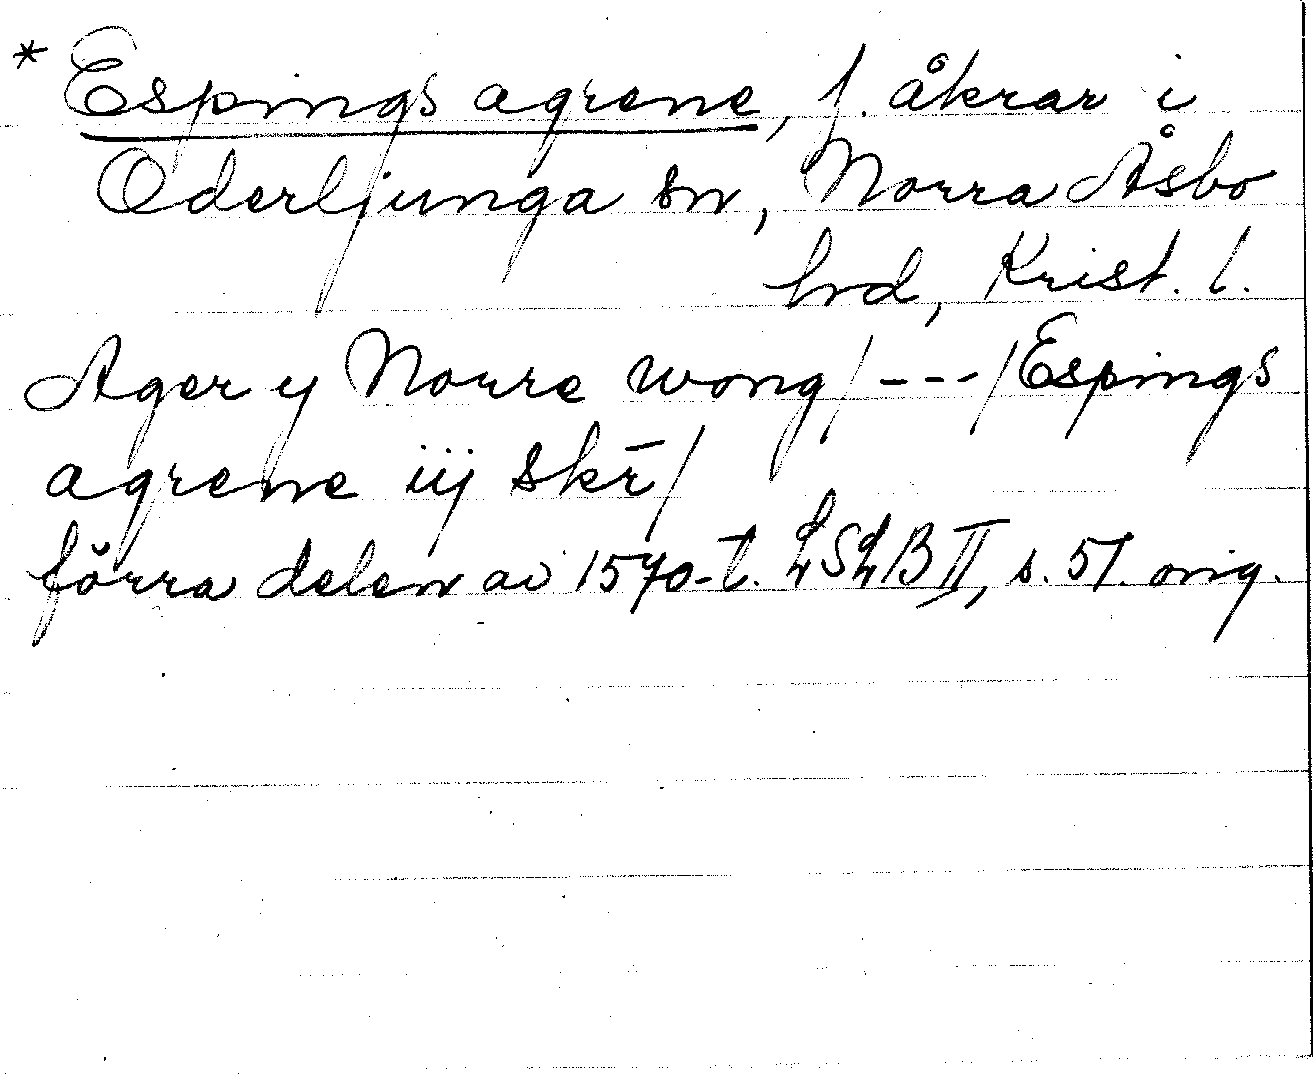 * Espings agrene, f. åkrar i
Oderljunga sn, Norra Åsbo
hrd, Krist. l.
Ager y Norre wong/---/Espings
agrene iij skr̄/
förra delen av 1570-t. LSLB II, s. 51. orig.